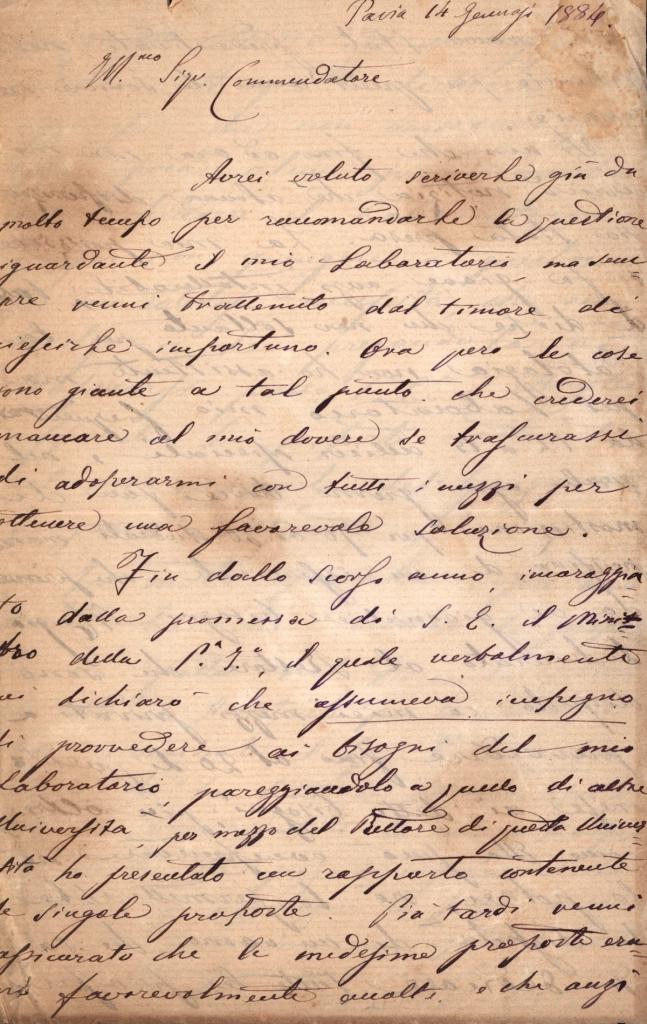 Pavia 14 Gennajo 1884.
Ill.mo Sigr. Commendatore
Avrei voluto scriverle già da
molto tempo per raccomandarle la questione
iguardante il mio Laboratorio, ma sem=
pre venni trattenuto dal timore di
riescirle importuno. Ora però le cose
sono giunte a tal punto che crederei
mancare al mio dovere se trascurassi
di adoperarmi con tutti i mezzi per
ottenere una favorevole soluzione.
Fin dallo scorso anno, incoraggia
to dalla promessa di S. E. il Mini=
stro della P.a I.a, il quale verbalmente
mi dichiarò che assumeva impegno
di provvedere ai bisogni del mio
Laboratorio, pareggiandolo a quello di altre
Università, per mezzo del Rettore di questa Univer=
sità ho presentato un rapporto contenente
le singole proposte. Più tardi venni
assicurato che le medesime proposte era=
no favorevolmente accolte e che anzi